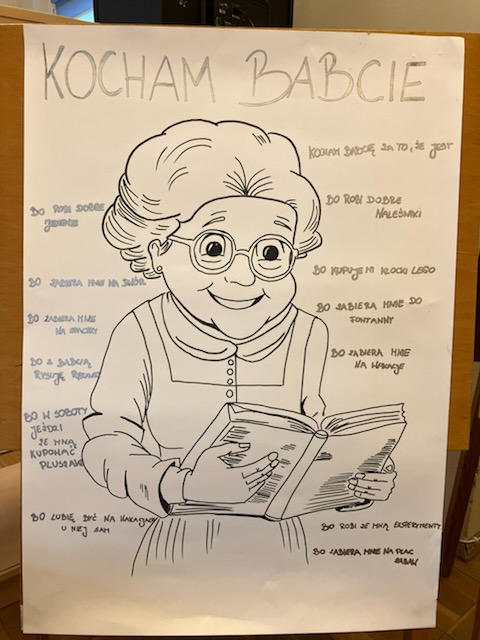 KOCHAM BABCIE
KOCHAM BABCIĘ ZA TO, ŻE JEST
BO ROBI DOBRE
JEDZENIE
BO ZABIERA MNIE NA DWÓR
BO ZABIERA MNIE
NA SPACERY
BO Z BABCIĄ
RYSUJĘ
BO W SOBOTY
JEŹDZI
ZE MNĄ
KUPOWAĆ
PLUSZAKI
BO LUBIĘ BYĆ NA WAKACJACH
U NIEJ SAM
BO ROBI DOBRE
NALEŚNIKI
BO KUPUJE MI KLOCKI LEGO
BO ZABIERA MNIE DO
FONTANNY
BO ZABIERA MNIE
NA WAKACJE
BO ROBI ZE MNĄ EKSPERYMENTY
BO ZABIERA MNIE NA PLAC
ZABAW